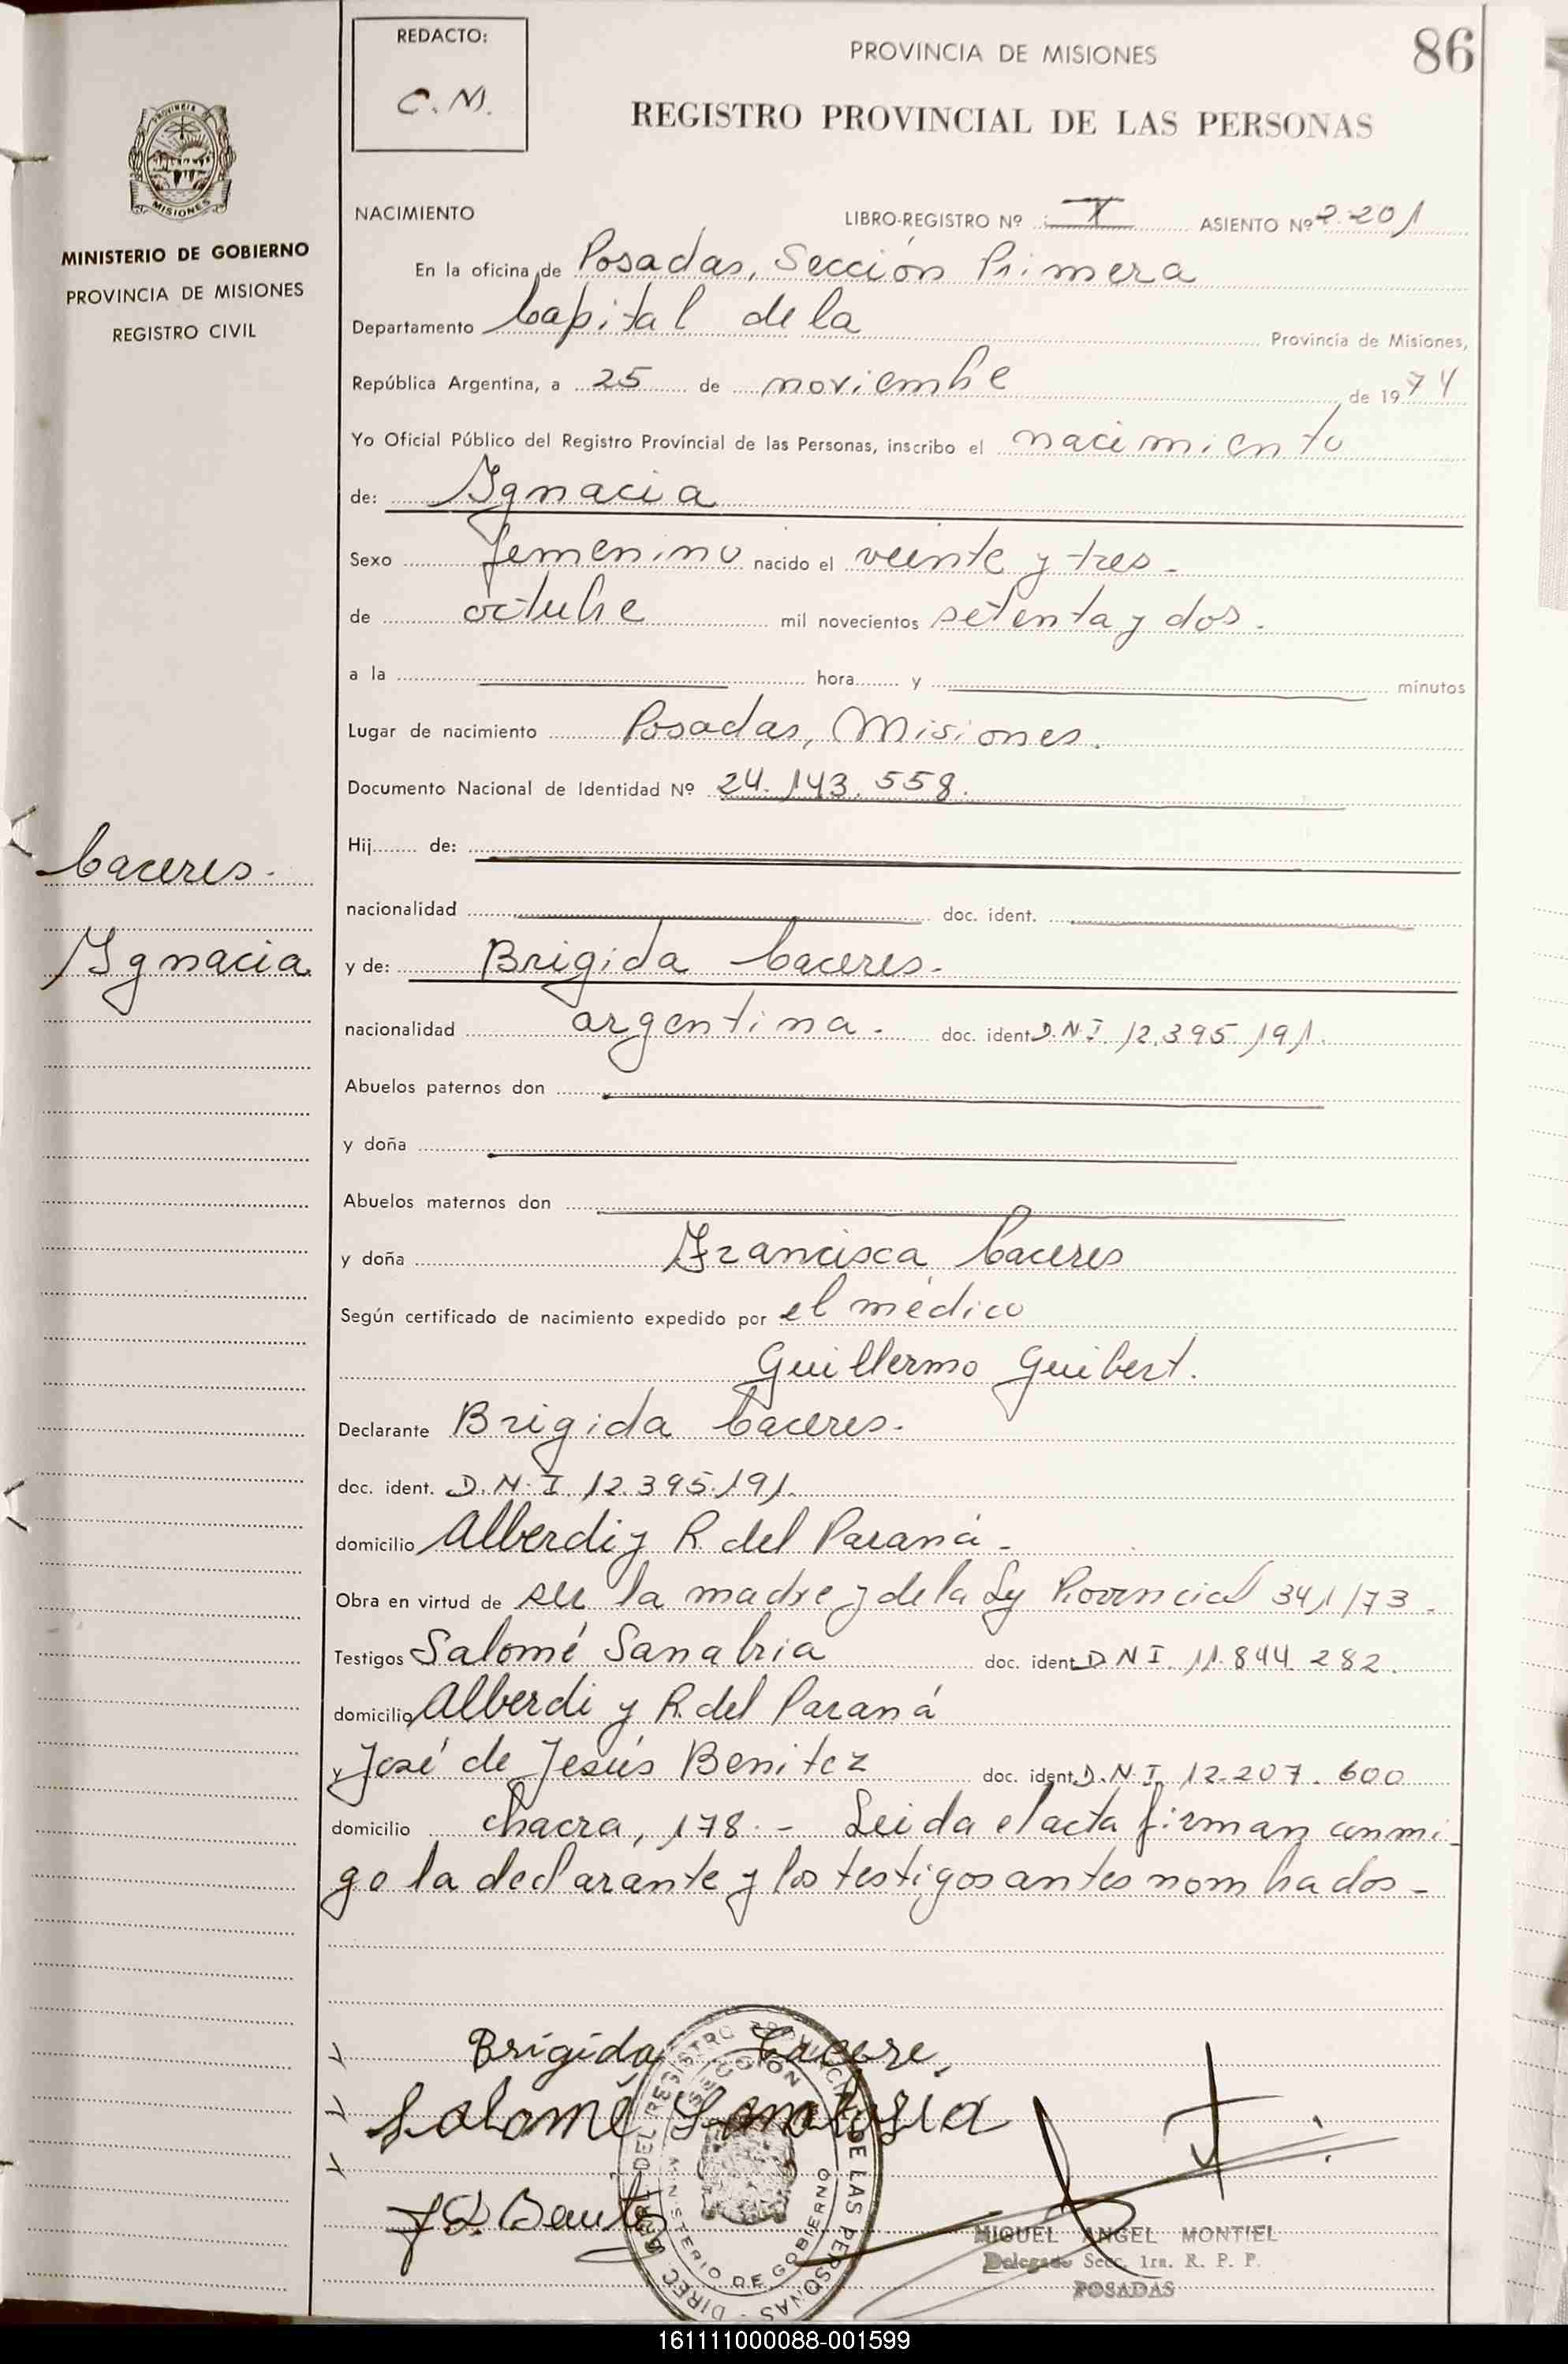 REDACTO:
C. M.
PROVINCIA DE MISIONES
86
REGISTRO PROVINCIAL DE LAS PERSONAS
PROVINCIA
MISIONES
MINISTERIO DE GOBIERNO
PROVINCIA DE MISIONES
REGISTRO CIVIL
NACIMIENTO LIBRO-REGISTRO Nº I ASIENTO Nº 2.201
En la oficina de Posadas, Sección Primera
Departamento Capital de la Provincia de Misiones,
República Argentina, a 25 de noviembre de 1974
Yo Oficial Público del Registro Provincial de las Personas, inscribo el nacimiento
de: Ygnacia
Sexo femenino nacido el veinte y tres -
de octubre mil novecientos setenta y dos.
a la hora y minutos
Lugar de nacimiento Posadas, Misiones.
Documento Nacional de Identidad Nº 24.143.558.
Hij de:
Caceres.
nacionalidad doc. ident.
Ygnacia
y de: Brigida Caceres.
nacionalidad argentina. doc. ident D.N.I. 12.395.191.
Abuelos paternos don
y doña
Abuelos maternos don
y doña Francisca Caceres
Según certificado de nacimiento expedido por el médico
Guillermo Guibert.
Declarante Brigida Caceres.
doc. ident. D.N.I. 12.395.191.
domicilio Alberdi y R. del Paraná -
Obra en virtud de ser la madre y de la Ley Provincial 341/73.
Testigos Salomé Sanabria doc. ident D N I. 11.844.282.
domicilio Alberdi y R. del Paraná
y José de Jesús Benitez doc. ident D.N.I. 12.207.600
domicilio chacra, 178. - Leida el acta firman conmi-
go la declarante y los testigos antes nombrados -
Brigida Cacere,
Salomé Sanabria
DIREC. GRAL. DEL REGISTRO PROVINCIAL DE LAS PERSONAS
SECCION
MINISTERIO DE GOBIERNO
MIGUEL ANGEL MONTIEL
Delegado Secc. 1ra. R. P. P.
POSADAS
161111000088-001599